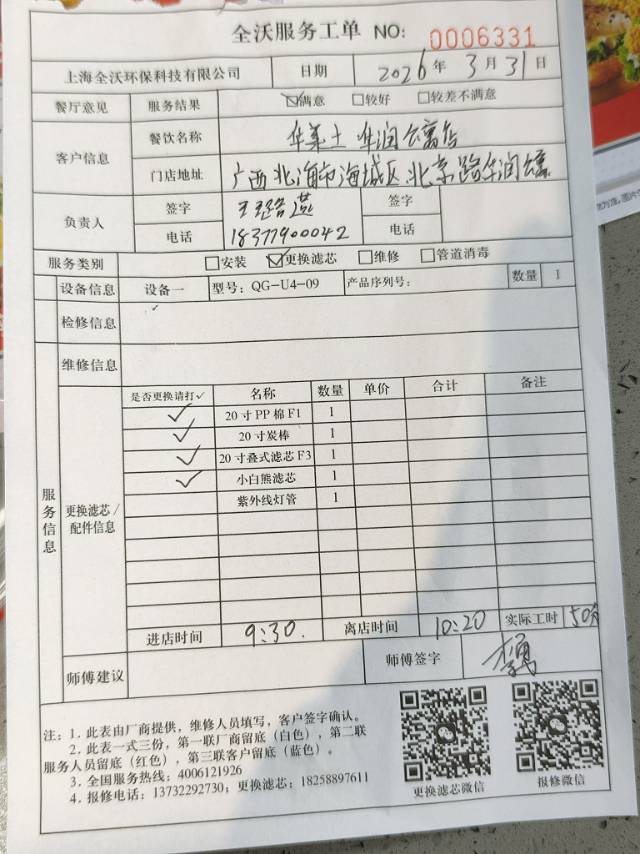 全沃服务工单 NO: 0006331
上海全沃环保科技有限公司 日期 2026年3月31日
餐厅意见 服务结果 ☑满意 □较好 □较差不满意
客户信息 餐饮名称 华莱士 华润公寓店
门店地址 广西北海市海城区北京路华润公寓
负责人 签字 签字
电话 18377900042 电话
服务类别 □安装 ☑更换滤芯 □维修 □管道消毒
设备信息 设备一 型号: QG-U4-09 产品序列号: 数量 1
检修信息
维修信息
服务信息
更换滤芯/配件信息
是否更换请打✓ 名称 数量 单价 合计 备注
✓ 20寸PP棉F1 1
✓ 20寸炭棒 1
✓ 20寸叠式滤芯F3 1
✓ 小白熊滤芯 1
紫外线灯管 1
进店时间 9:30 离店时间 10:20 实际工时 50分
师傅建议 师傅签字
注: 1. 此表由厂商提供，维修人员填写，客户签字确认。
2. 此表一式三份，第一联厂商留底（白色），第二联
服务人员留底（红色），第三联客户留底（蓝色）。
3. 全国服务热线: 4006121926
4. 报修电话: 13732292730; 更换滤芯: 18258897611
更换滤芯微信 报修微信